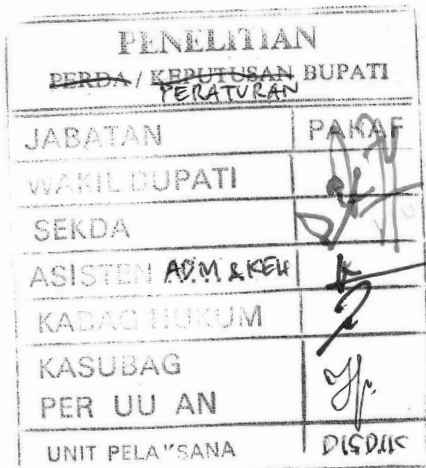 PENELITIAN
PERDA / KEPUTUSAN BUPATI
PERATURAN
JABATAN PARAF
WAKIL BUPATI
SEKDA
ASISTEN ADM & KEH
KABAG HUKUM
KASUBAG
PER UU AN
UNIT PELA"SANA DISDIK